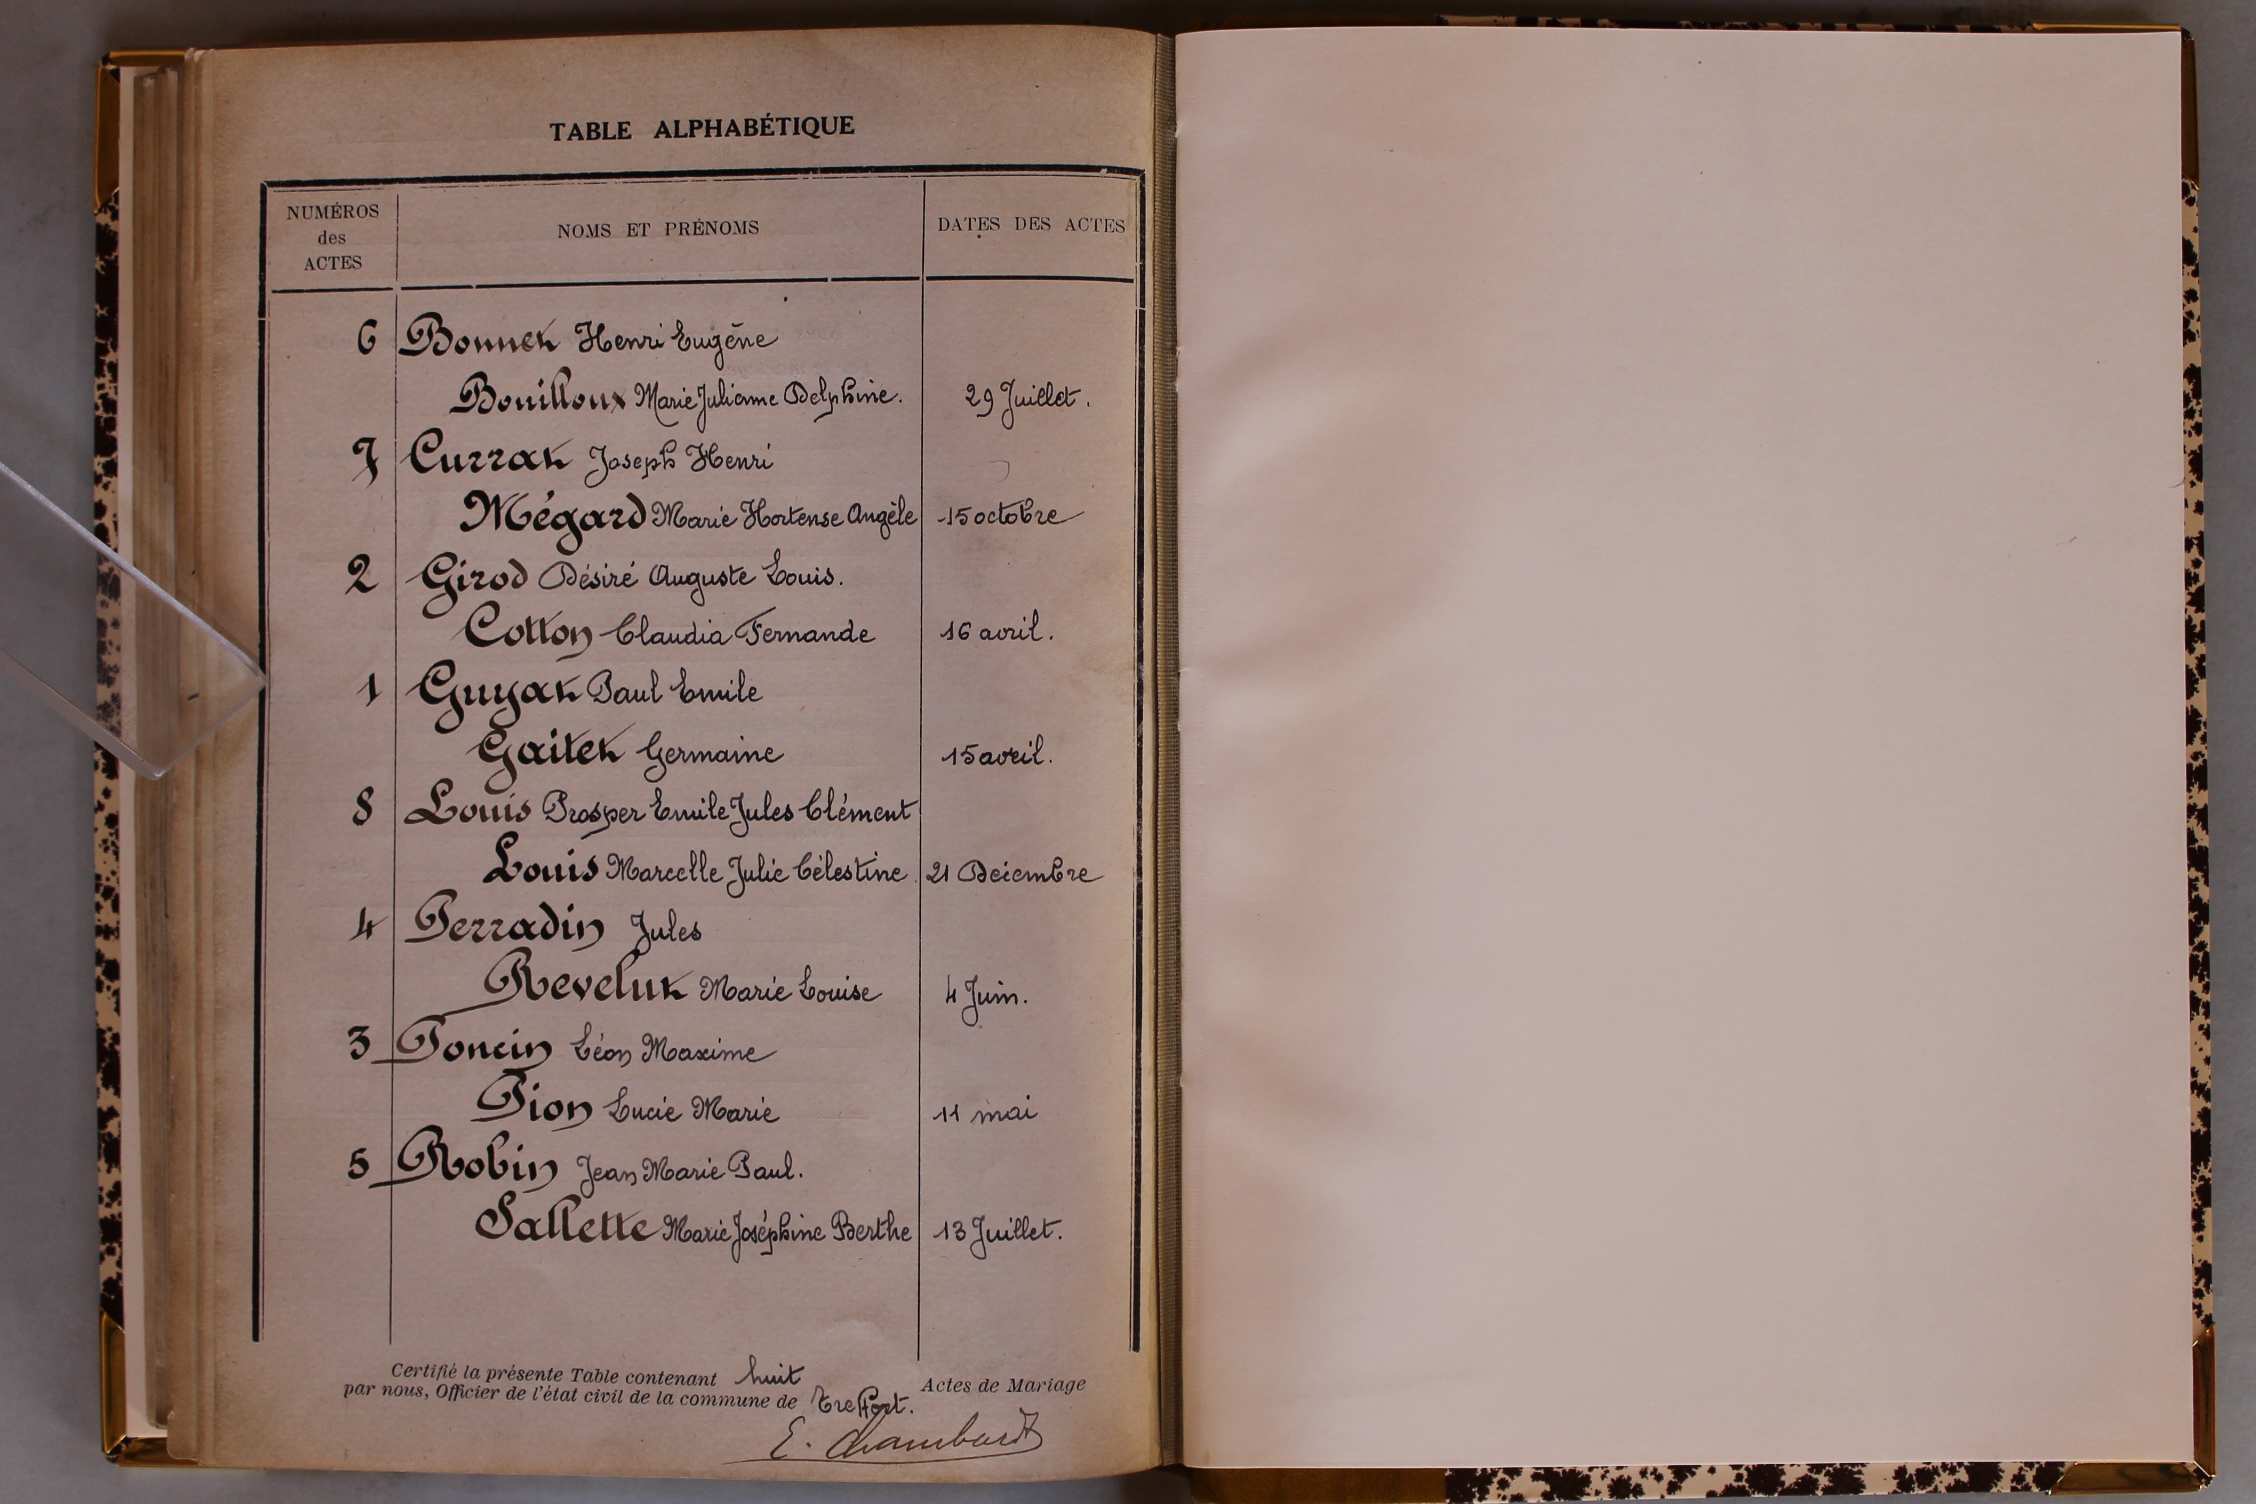 TABLE ALPHABÉTIQUE
NUMÉROS
des
ACTES
NOMS ET PRÉNOMS
DATES DES ACTES
6 Bonnet Henri Eugène
Bouilloux Marie Julienne Delphine. 29 Juillet.
7 Currat Joseph Henri
Mégard Marie Hortense Angèle 15 octobre
2 Girod Désiré Auguste Louis.
Cotton Claudia Fernande 16 avril.
1 Guyat Paul Emile
Gaitet Germaine 15 avril.
8 Louis Prosper Emile Jules Clément
Louis Marcelle Julie Célestine 21 Décembre
4 Perradin Jules
Revelut Marie Louise 4 Juin.
3 Poncin Léon Maxime
Pion Lucie Marie 11 mai
5 Robin Jean Marie Paul.
Sallette Marie Joséphine Berthe 13 Juillet.
Certifié la présente Table contenant huit Actes de Mariage
par nous, Officier de l'état civil de la commune de Treffort.
E. Chambard